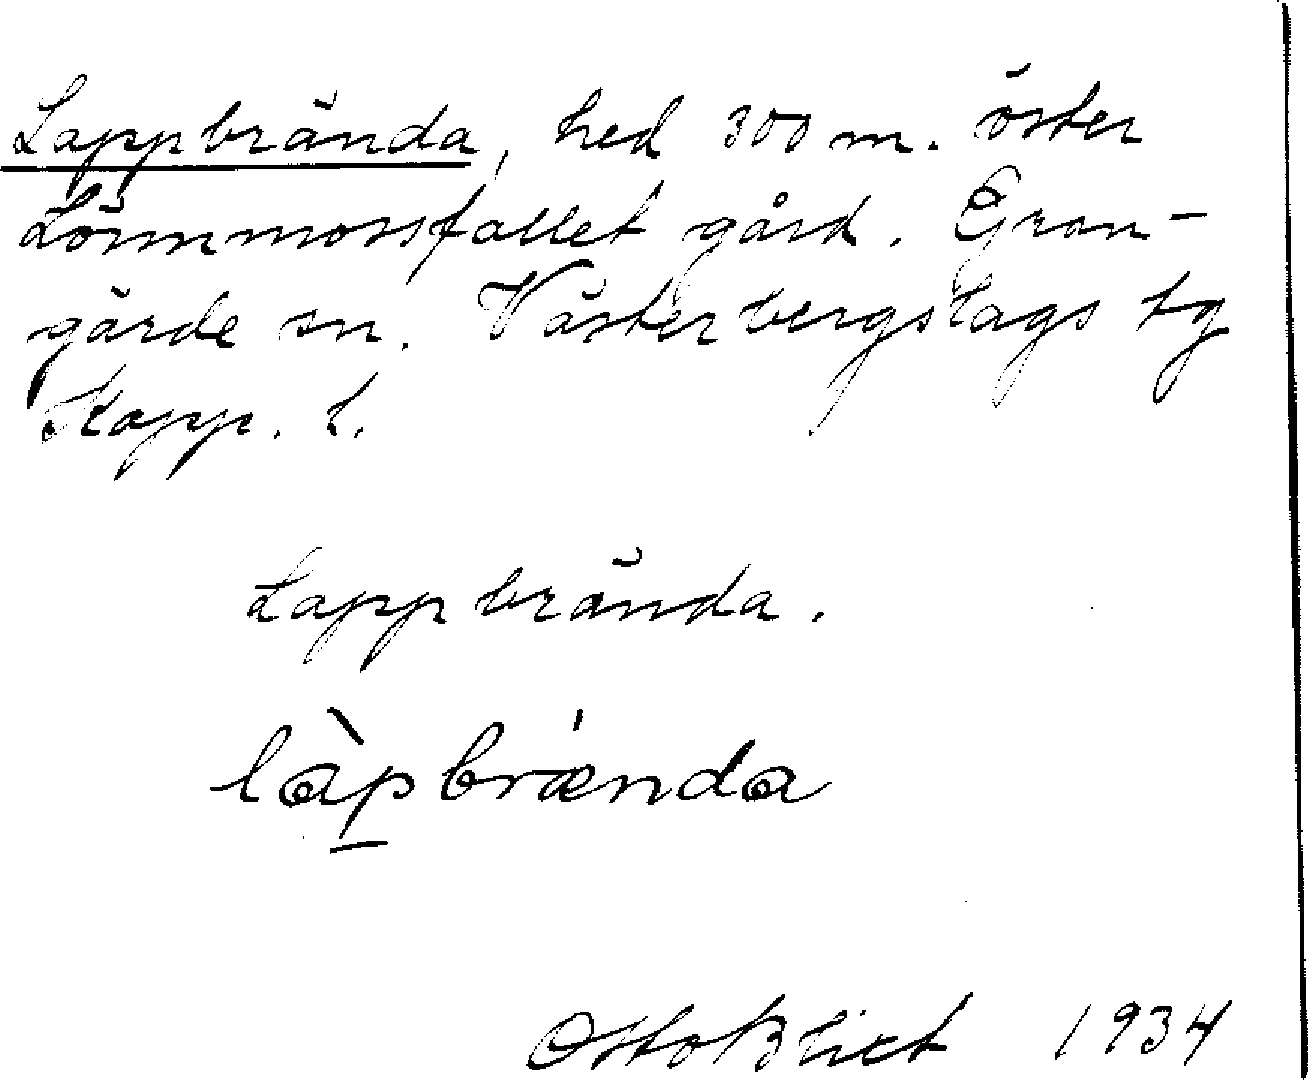 Lappbrända, hed 300 m. öster
Lömmossfallet gård. Gran-
gärde sn. Västerbergslags tg
Kopp. l.
Lappbrända.
làpbrænda
Otto Blixt 1934